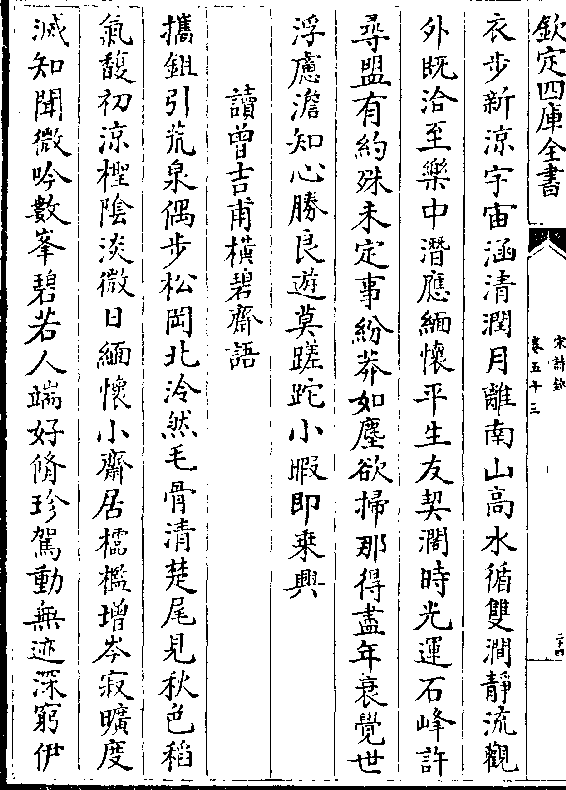 欽定四庫全書
宋詩鈔
卷五十三
二十四
衣步新涼宇宙涵清潤月離南山高水循雙澗靜流觀
外既洽至樂中潛應緬懷平生友契濶時光運石峰許
尋盟有約殊未定事紛莽如塵欲掃那得盡年衰覺世
浮慮澹知心勝良遊莫蹉跎小暇即乗興
讀曾吉甫橫碧齋語
攜鉏引荒泉偶步松岡北泠然毛骨清楚尾見秋色稻
氣馥初涼檉陰淡微日緬懷小齋居檽檻增岑寂曠度
滅知聞微吟數峯碧若人端好脩珍駕動無迹深窮伊